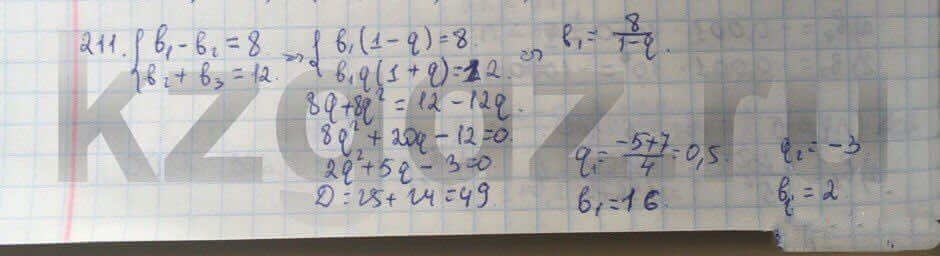 211. { b₁ - b₂ = 8 ⇒ { b₁(1-q) = 8 ⇒ b₁ = 8/(1-q).
b₂ + b₃ = 12. b₁q(1+q) = 12.
8q + 8q² = 12 - 12q.
8q² + 20q - 12 = 0.
2q² + 5q - 3 = 0
D = 25 + 24 = 49.
q₁ = (-5+7)/4 = 0,5. q₂ = -3
b₁ = 16. b₁ = 2
kzgdz.ru